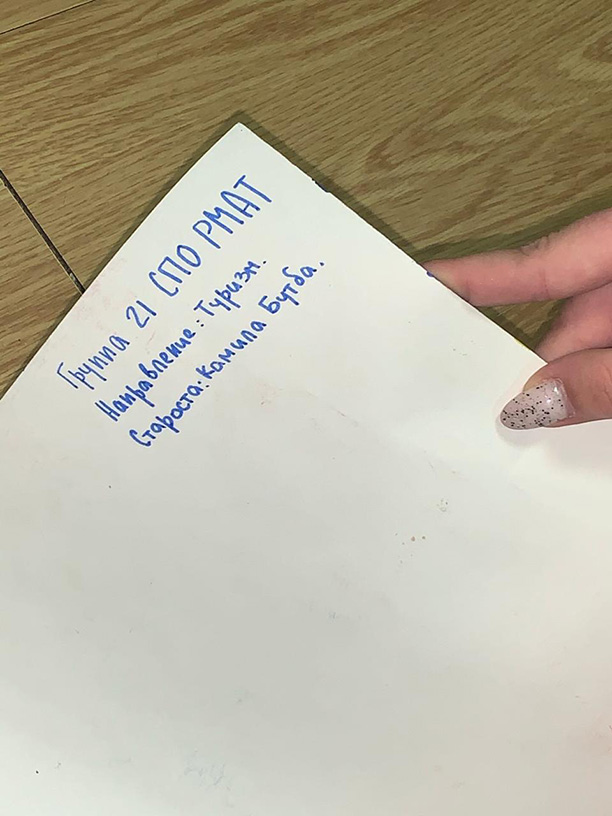 Группа 21 СПО РМАТ
Направление: Туризм.
Староста: Камила Бутба.